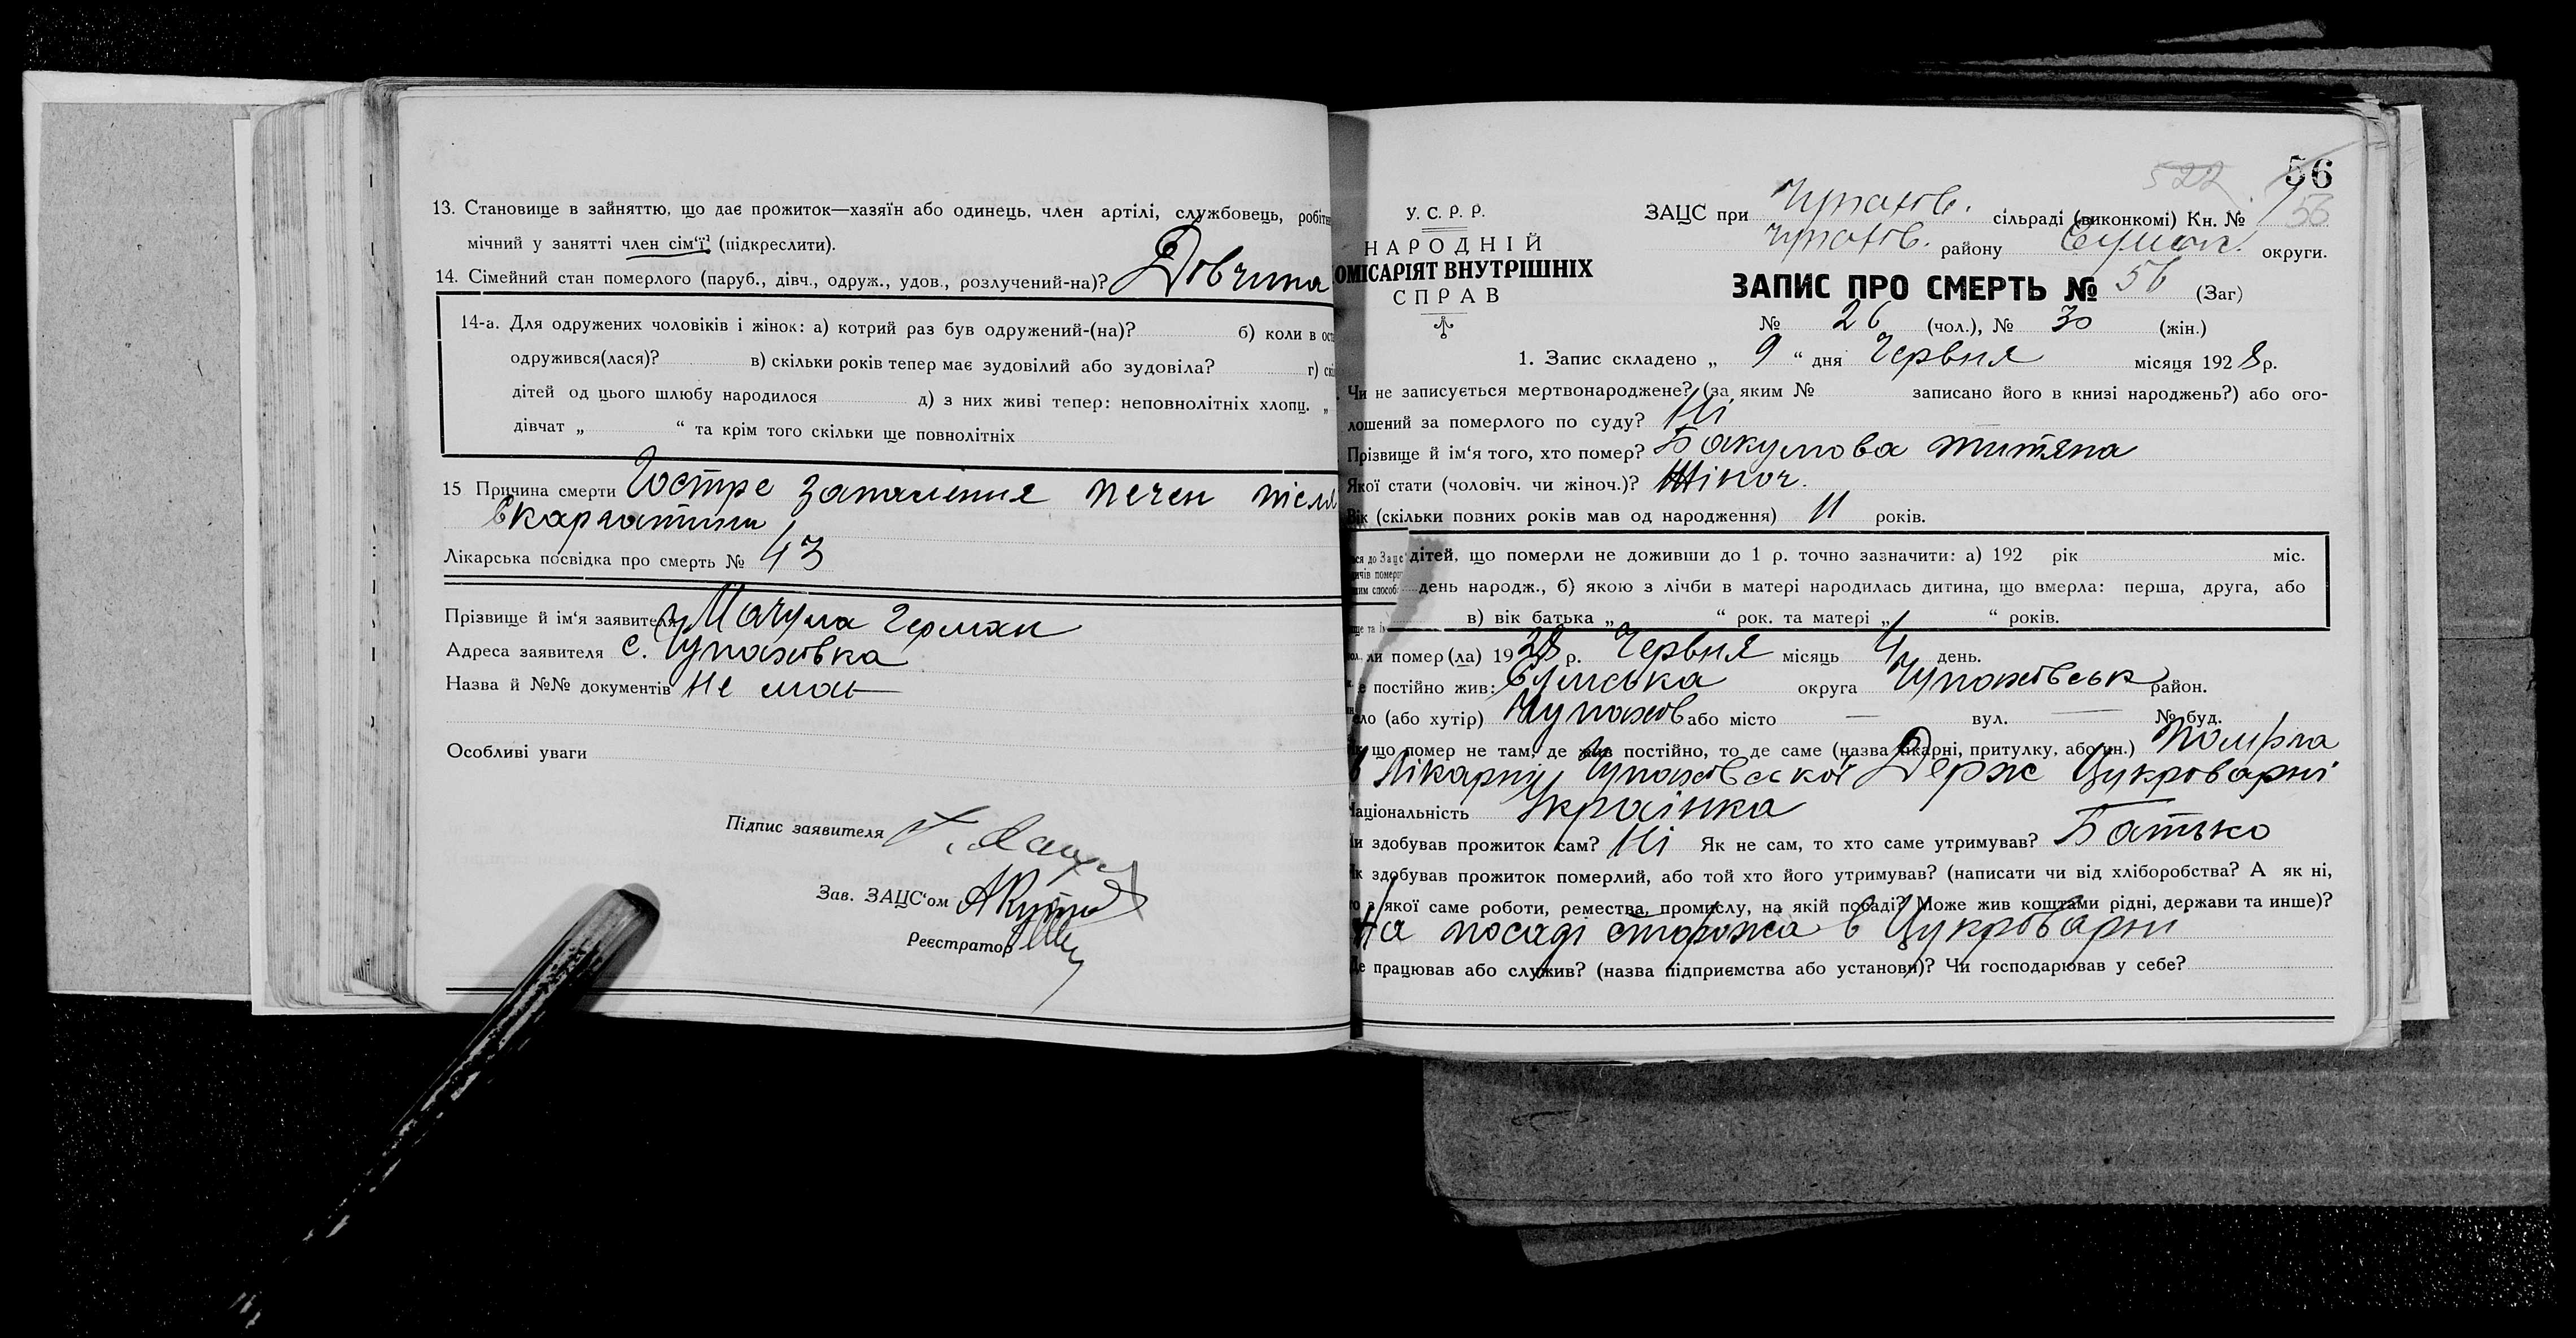 13. Становище в зайняттю, що дає прожиток—хазяїн або одинець, член артілі, службовець, робітн
мічний у занятті член сім'ї (підкреслити).
14. Сімейний стан померлого (паруб., дівч., одруж., удов., розлучений-на)? Дівчина
14-а. Для одружених чоловіків і жінок: а) котрий раз був одружений-(на)? б) коли в ост
одружився(лася)? в) скільки років тепер має зудовілий або зудовіла? г) скі
дітей од цього шлюбу народилося д) з них живі тепер: неповнолітніх хлопц. „
дівчат „ “ та крім того скільки ще повнолітніх
15 Причина смерти Гостре запалення печен після
скарлатини
Лікарська посвідка про смерть № 43
Прізвище й ім'я заявителя Мачула Герман
Адреса заявителя с. Чупаховка
Назва й №№ документів не має
Особливі уваги
Підпис заявителя
Зав. ЗАЦС'ом
Реєстратор
56
522
У. С. Р. Р.
НАРОДНІЙ
ОМІСАРІЯТ ВНУТРІШНІХ
СПРАВ
ЗАЦС при Чупахов. сільраді (виконкомі) Кн. № 56
Чупахов. району Сумськ. округи.
ЗАПИС ПРО СМЕРТЬ № 56 (Заг)
№ 26 (чол.), № 30 (жін.)
1. Запис складено „ 9 “ дня Червня місяця 1928 р.
Чи не записується мертвонароджене? (за яким № записано його в книзі народжень?) або ого-
лошений за померлого по суду? Ні
Прізвище й ім'я того, хто помер? Бакумова Титяна
Якої стати (чоловіч. чи жіноч.)? Жіноч.
Вік (скільки повних років мав од народження) 11 років.
дітей, що померли не доживши до 1 р. точно зазначити: а) 192 рік міс.
день народж., б) якою з лічби в матері народилась дитина, що вмерла: перша, друга, або
в) вік батька „ “ рок. та матері „ “ років.
ли помер(ла) 1928 р. Червня місяць 4 день.
е постійно жив: Сумська округа Чупахівськ район.
ело (або хутір) Чупахов або місто — вул. — № буд.
що помер не там, де жив постійно, то де саме (назва лікарні, притулку, або ин.) Померла
в Лікарні Чупахівської Держ Цукроварні
Національність Українка
Чи здобував прожиток сам? Ні Як не сам, то хто саме утримував? Батько
Як здобував прожиток померлий, або той хто його утримував? (написати чи від хліборобства? А як ні,
то з якої саме роботи, ремества, промислу, на якій посаді? Може жив коштами рідні, держави та инше)?
На посаді сторожа в Цукроварні
Де працював або служив? (назва підприємства або установи)? Чи господарював у себе?